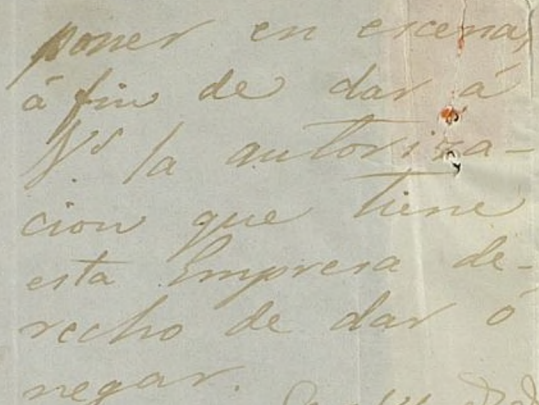 poner en escena,
á fin de dar á
Vs la autoriza-
cion que tiene
esta Empresa de-
recho de dar ó
negar.